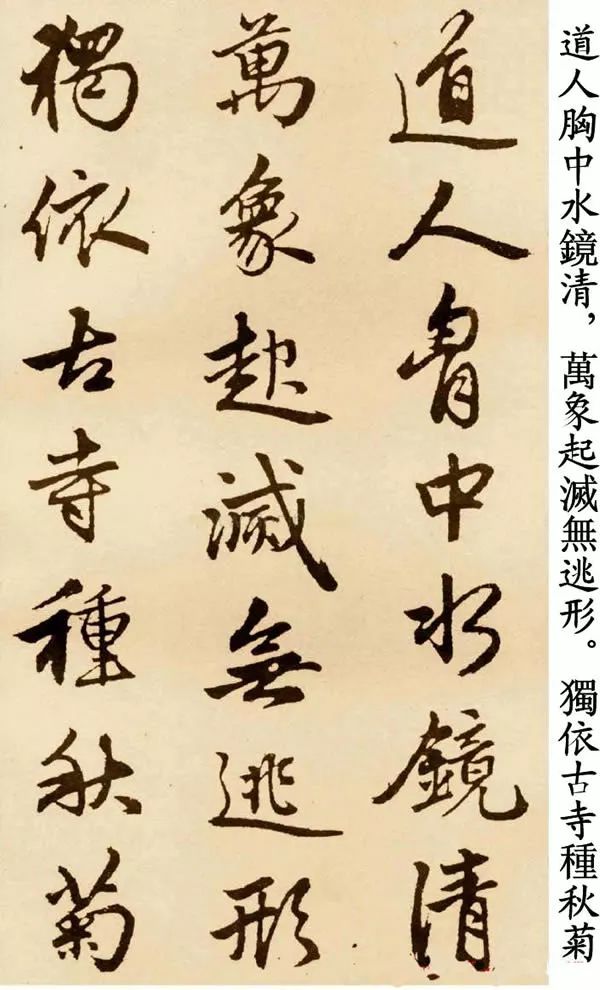 道人胷中水鏡清
萬象起滅無逃形
獨依古寺種秋菊
道人胸中水鏡清，萬象起滅無逃形。獨依古寺種秋菊